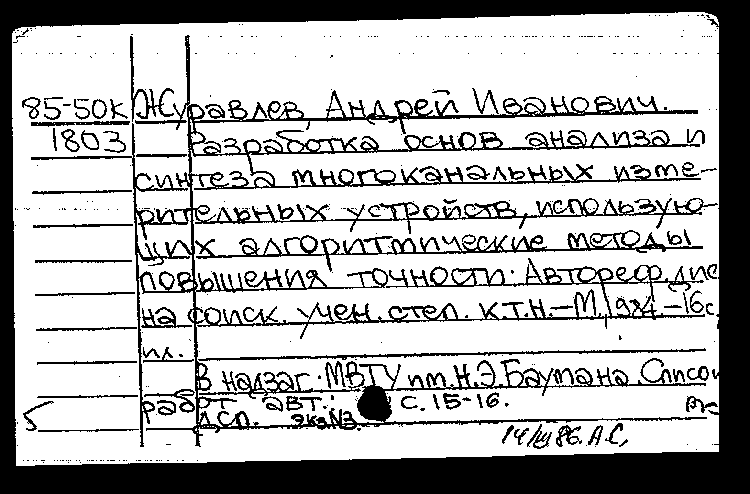 85-50к Журавлев, Андрей Иванович.
1803 Разработка основ анализа и
синтеза многоканальных изме-
рительных устройств, использую-
щих алгоритмические методы
повышения точности: Автореф. дис
на соиск. учен. степ. к.т.н.-М., 1984.-16с.
ил.
В надзаг.: МВТУ им. Н.Э. Баумана. Список
5 работ авт.: с. 15-16.
ДСП. экз.№3
14/III 86. А.С.